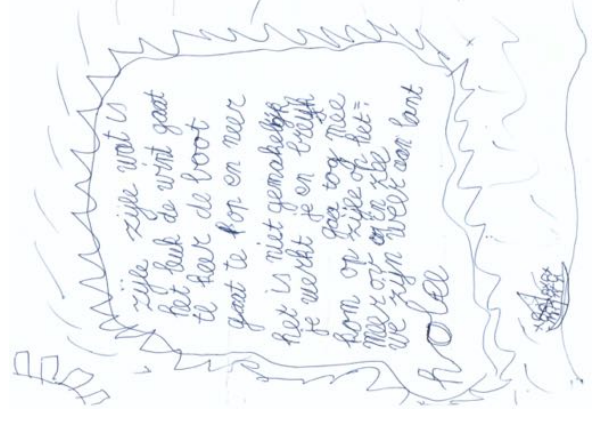 zijle zijle wat is
het leuk de wint gaat
te keer de boot
gaat te hop en neer
het is niet gemakelijk
je werkt je en breijk
kom op gaa tog mee
zijle op het=
meer of op en zee
we zijn weer aan lant
holee